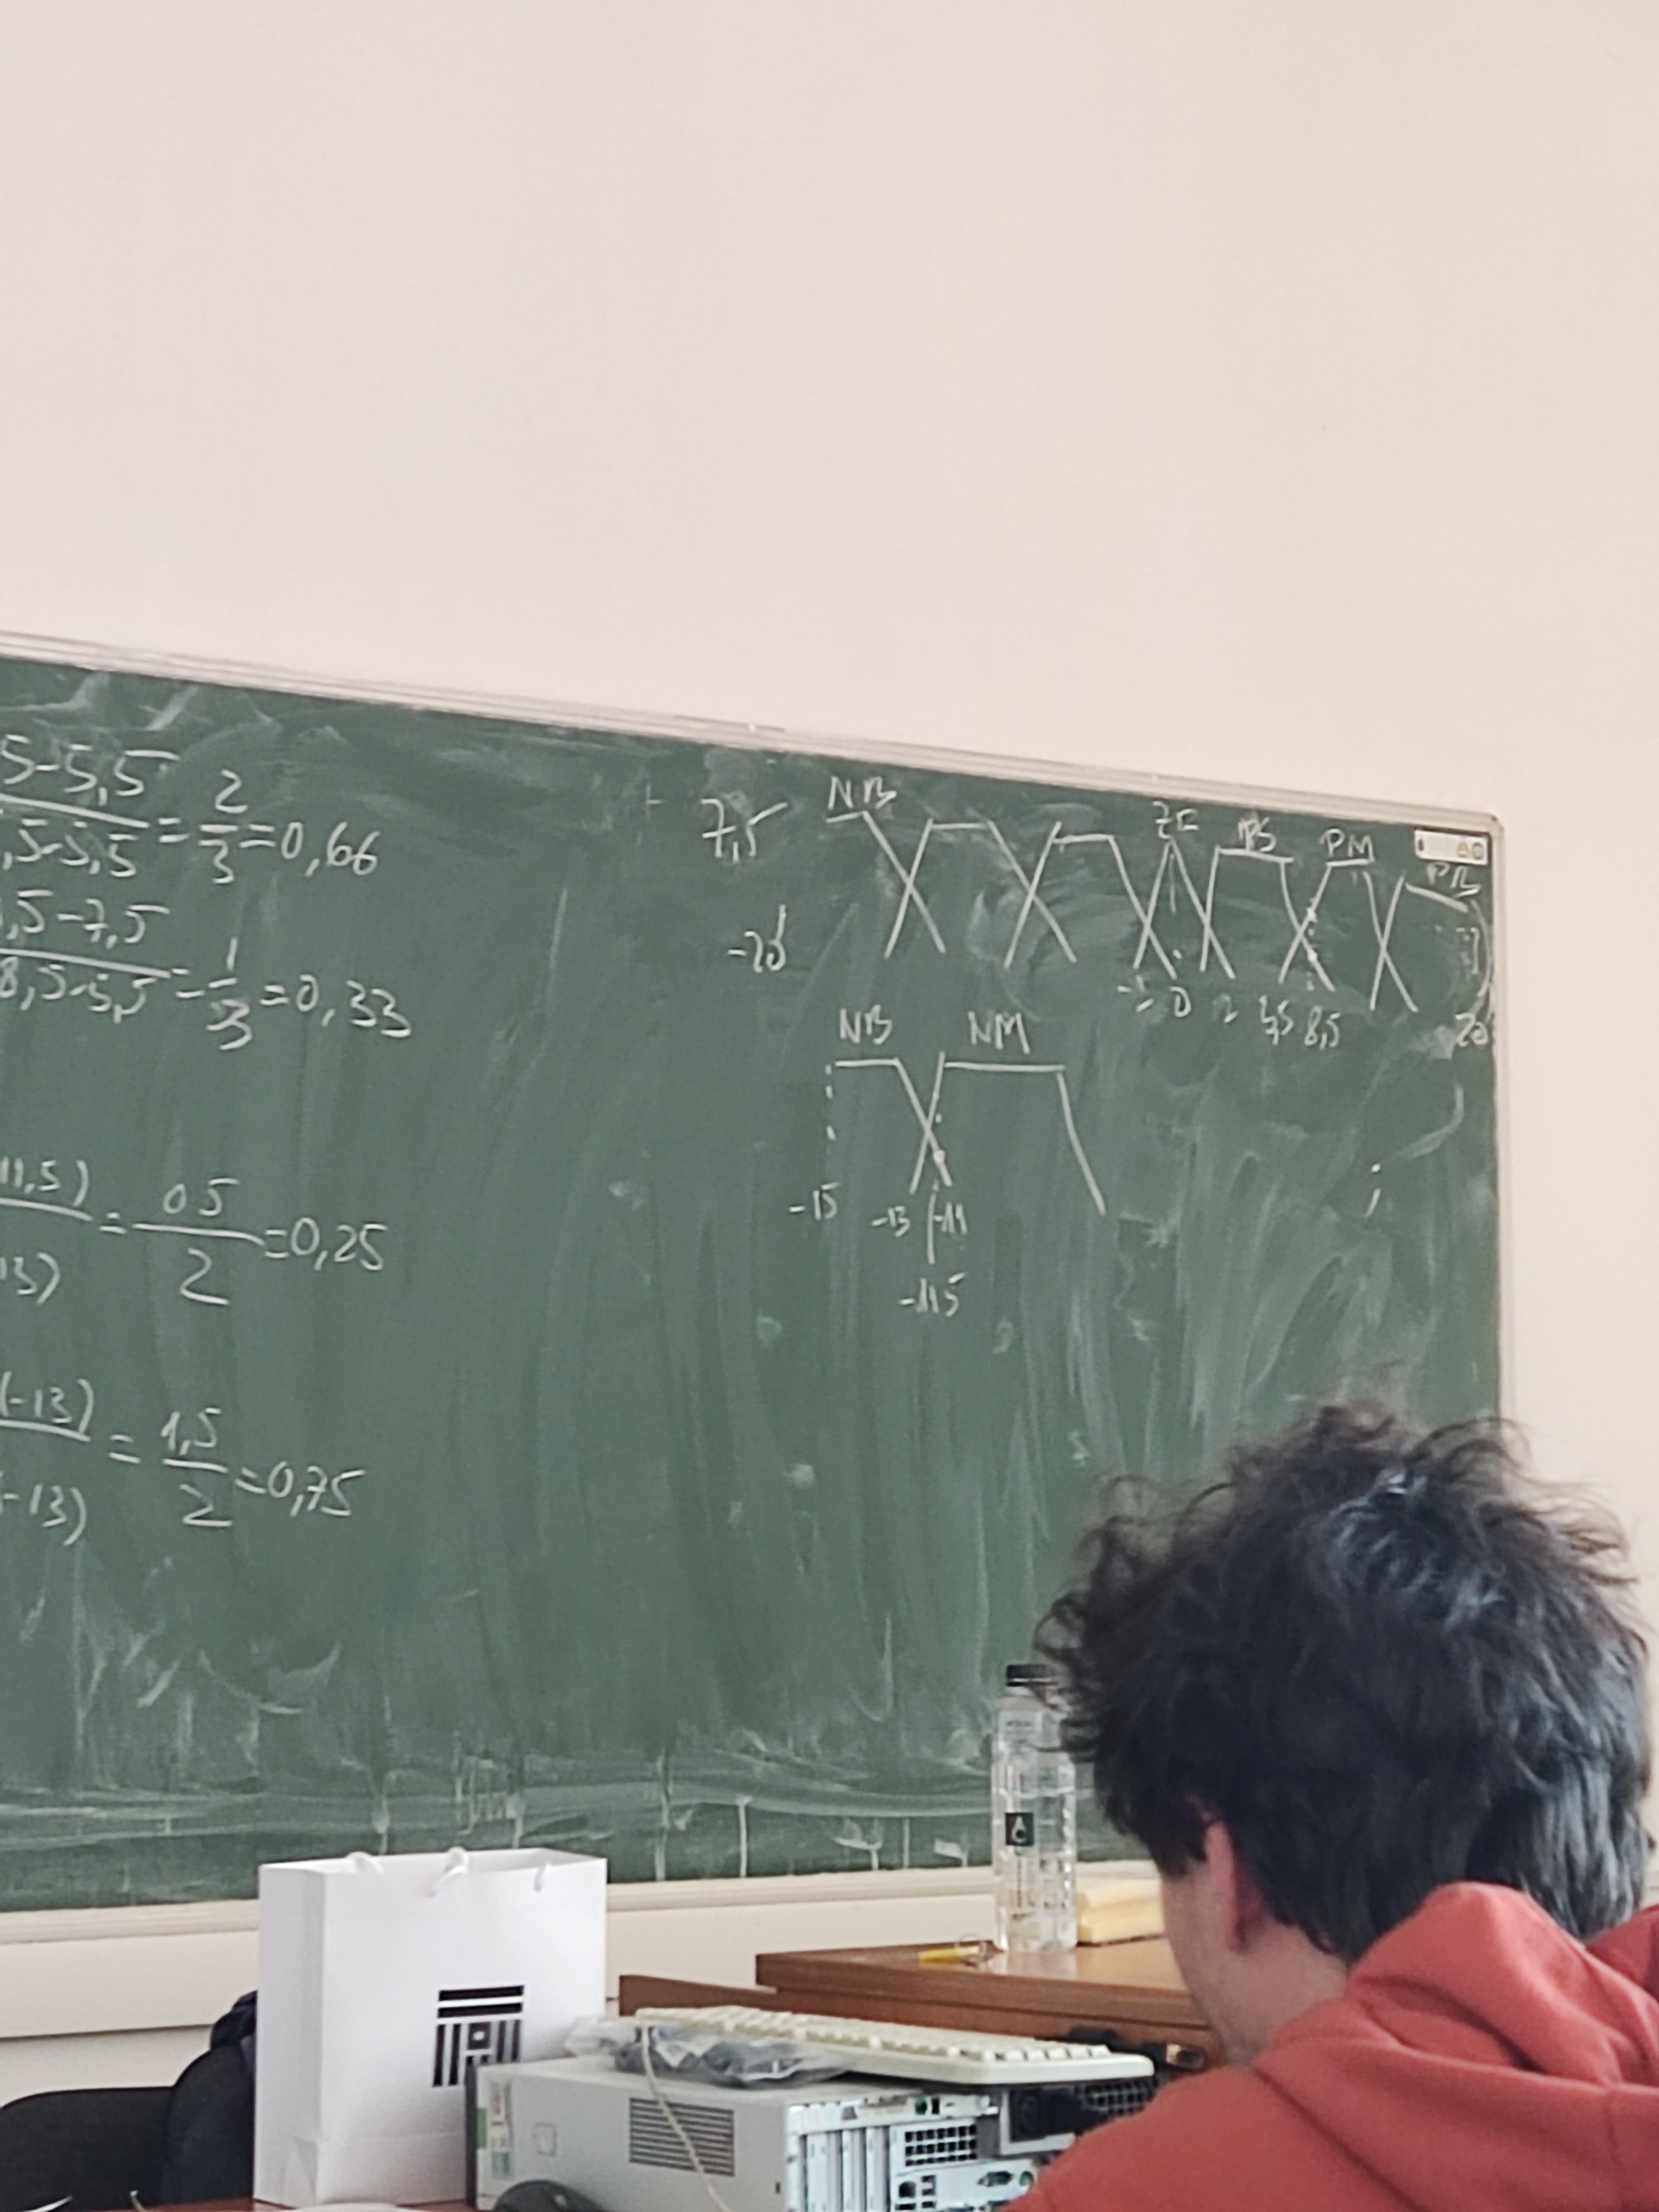 5-5,5 / ,5-5,5 = 2/3 = 0,66
,5-7,5 / 8,5-5,5 = 1/3 = 0,33
11,5) / 13) = 05/2 = 0,25
(-13) / (-13) = 1,5/2 = 0,75
7,5
NB ZE PS PM PB
-20
0 2 5,5 8,5 20
NB NM
-15 -13 -11
-11,5